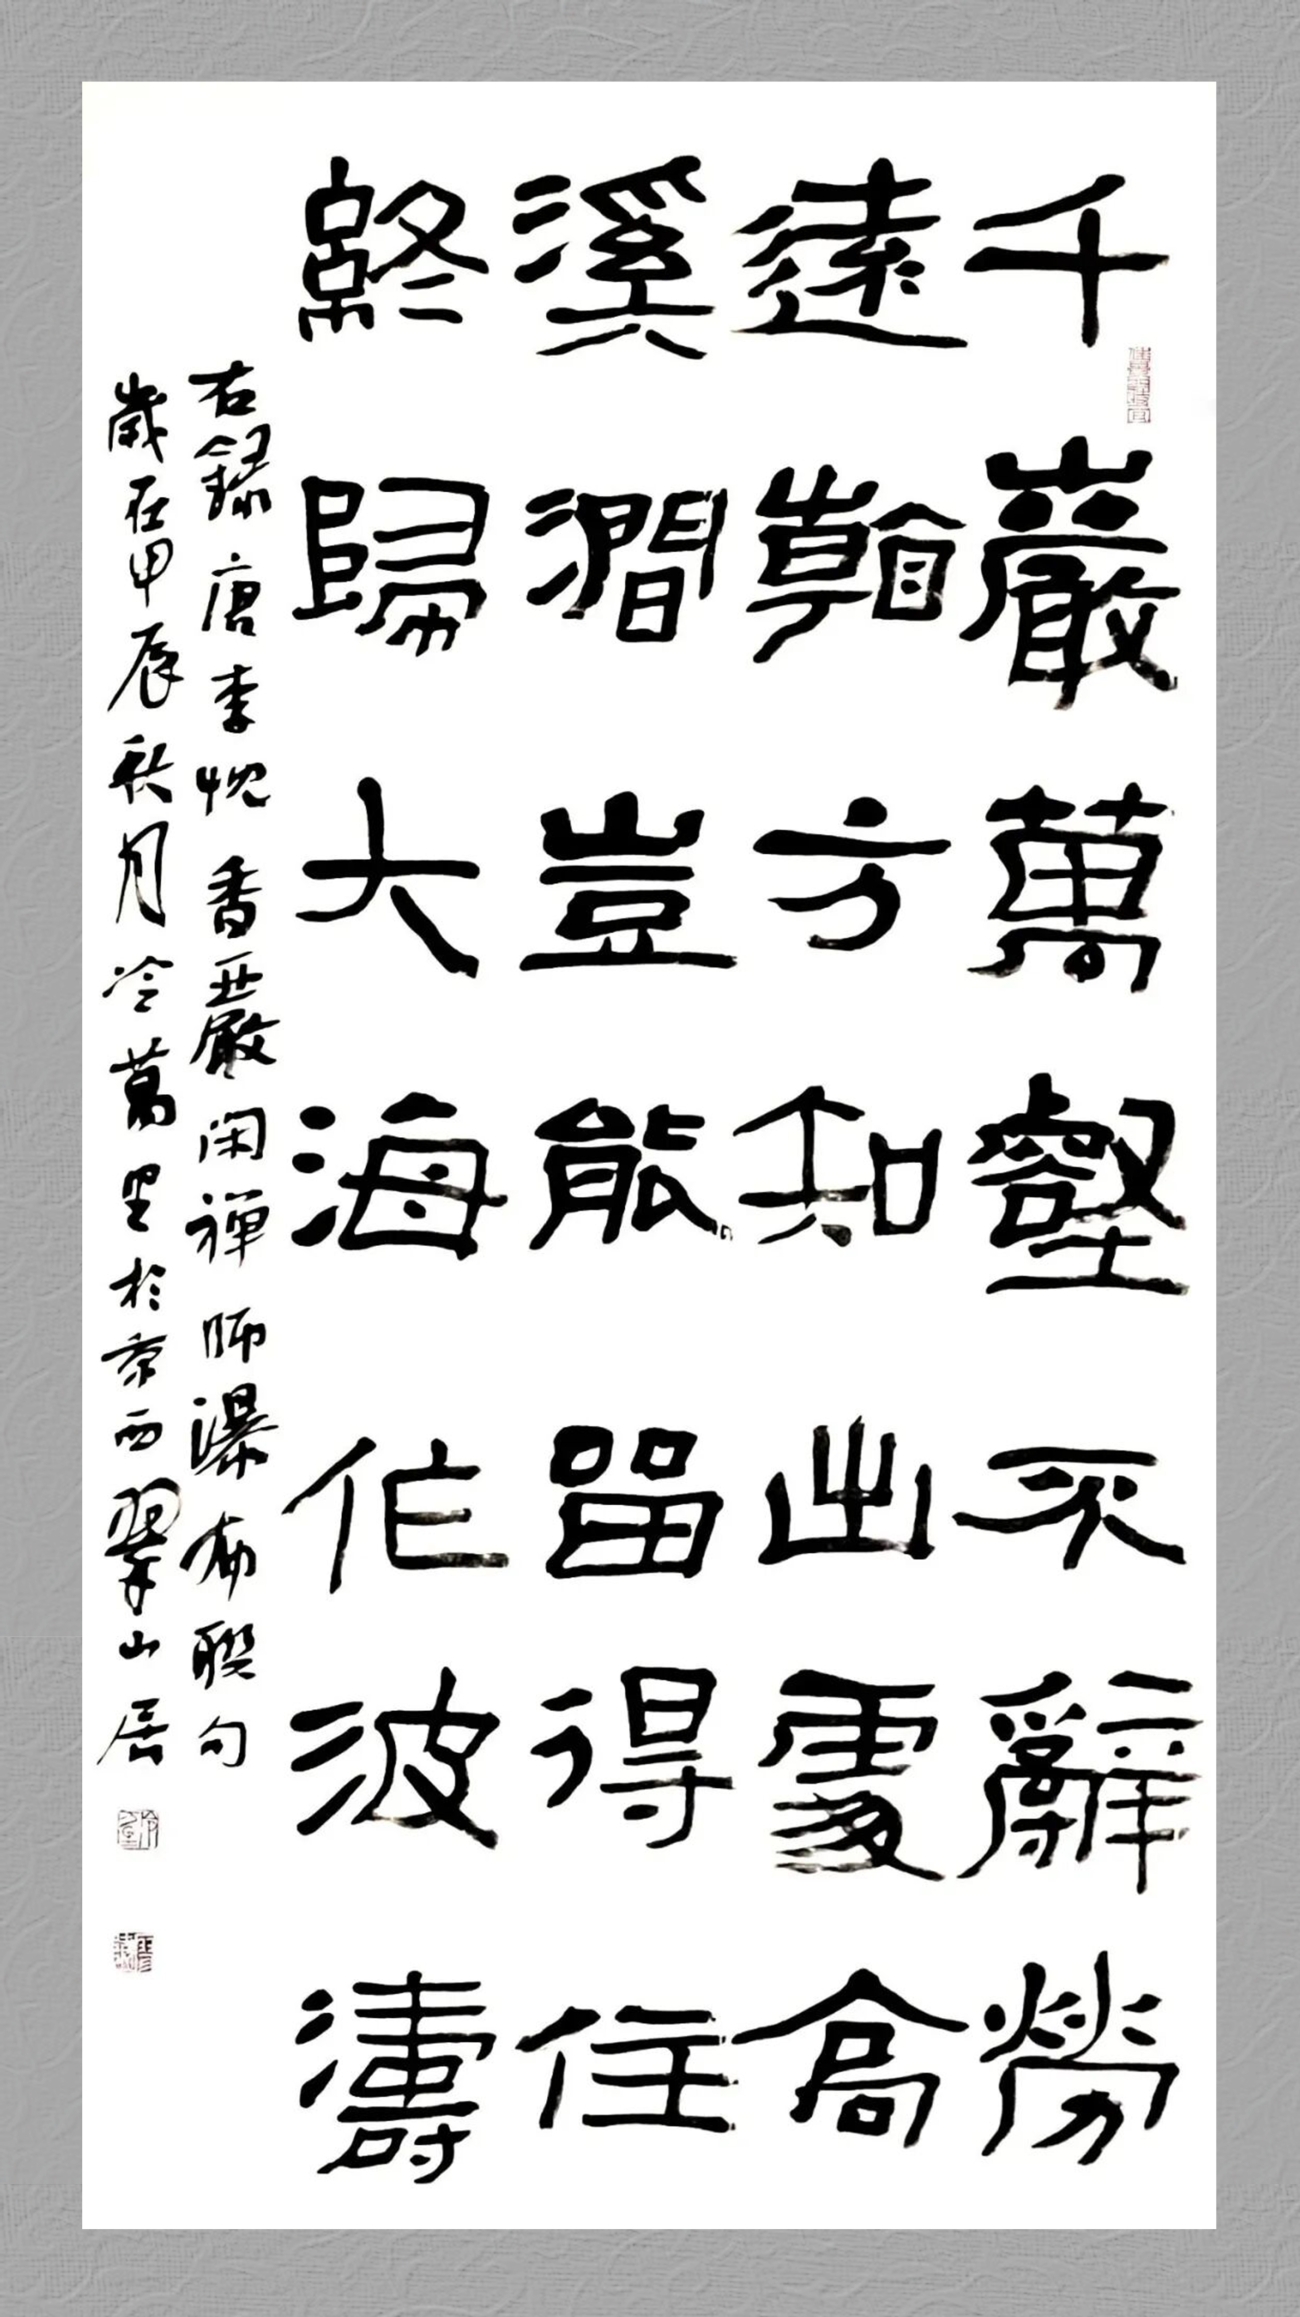 千巖萬壑不辭勞
遠觀方知出處高
溪澗豈能留得住
終歸大海作波濤
右録唐李忱香巖閑禅師瀑布聯句
歲在甲辰秋月冷萬里於京西翠山居